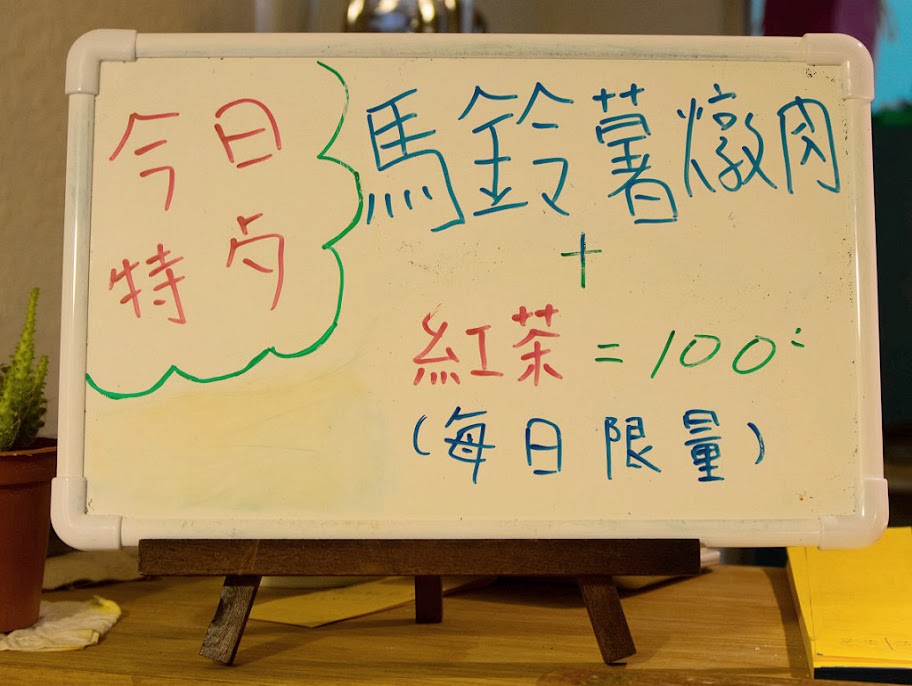 今日
特歺
馬鈴薯燉肉
+
紅茶=100
(每日限量)